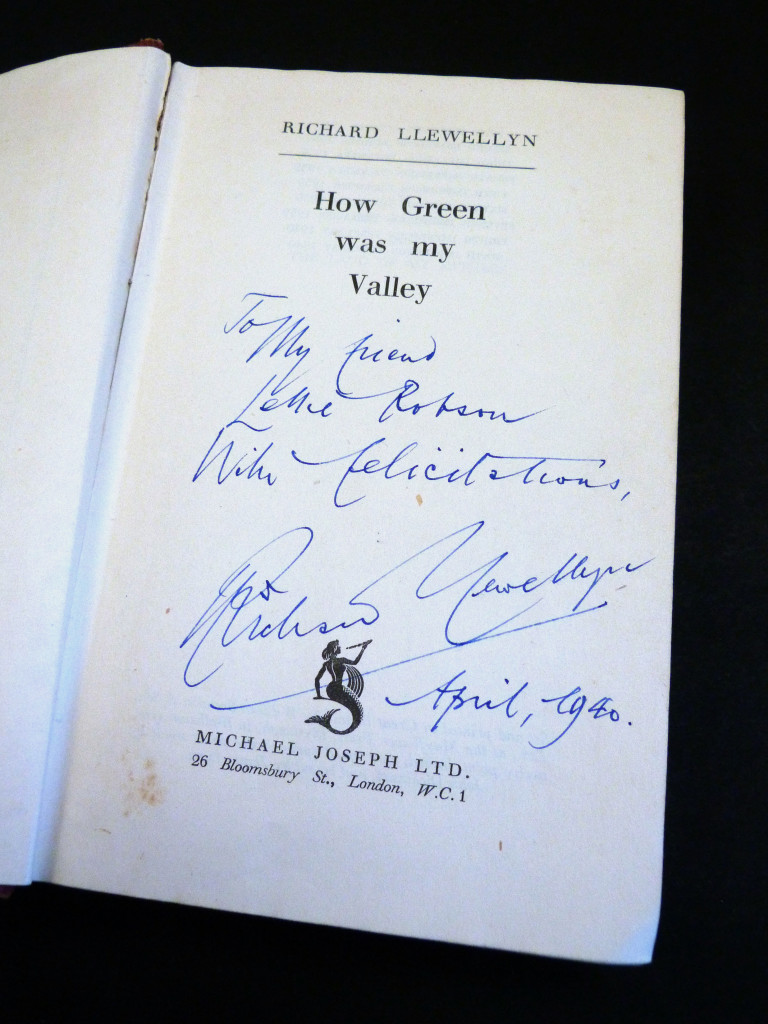 RICHARD LLEWELLYN
How Green
was my
Valley
To
My friend
Robson
With felicitations,
Richard Llewellyn
April, 1940.
MICHAEL JOSEPH LTD.
26 Bloomsbury St., London, W.C.1